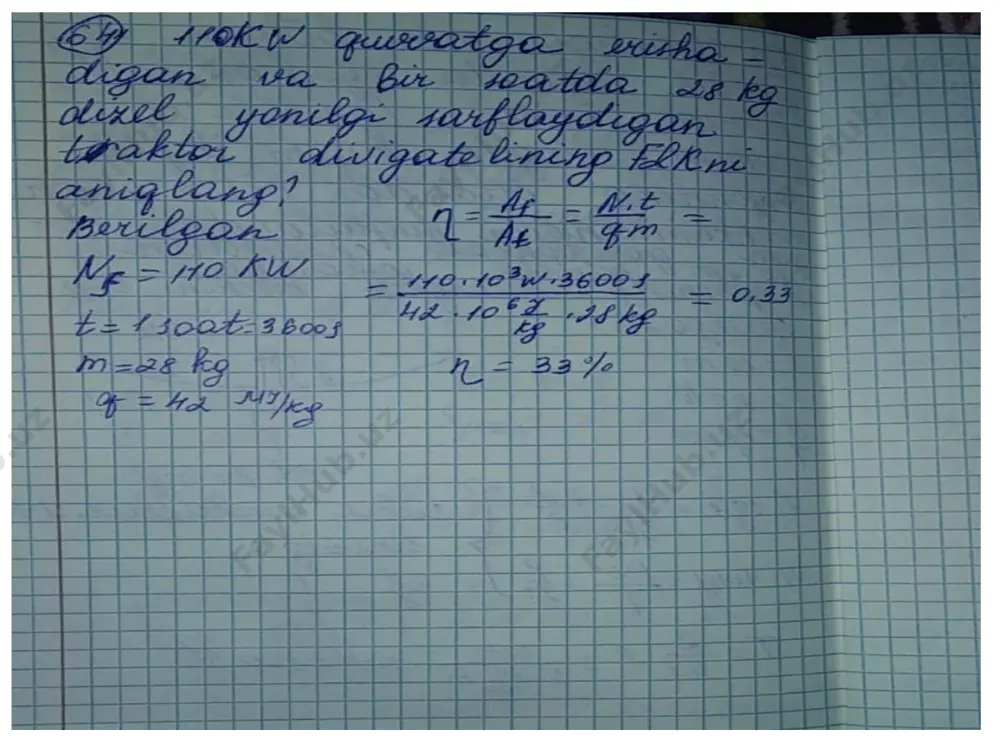 64 110KW quvvatga erisha-
digan va bir soatda 28 kg
dizel yonilgi sarflaydigan
traktor divigatelining FIKni
aniqlang?
Berilgan
N_f = 110 KW
t = 1 soat = 3600s
m = 28 kg
q = 42 MJ/kg
η = A_f/A_t = N·t/qm =
= 110·10³W·3600s / 42·10⁶ J/kg·28kg = 0.33
η = 33%
FaylHub.uz
FaylHub.uz